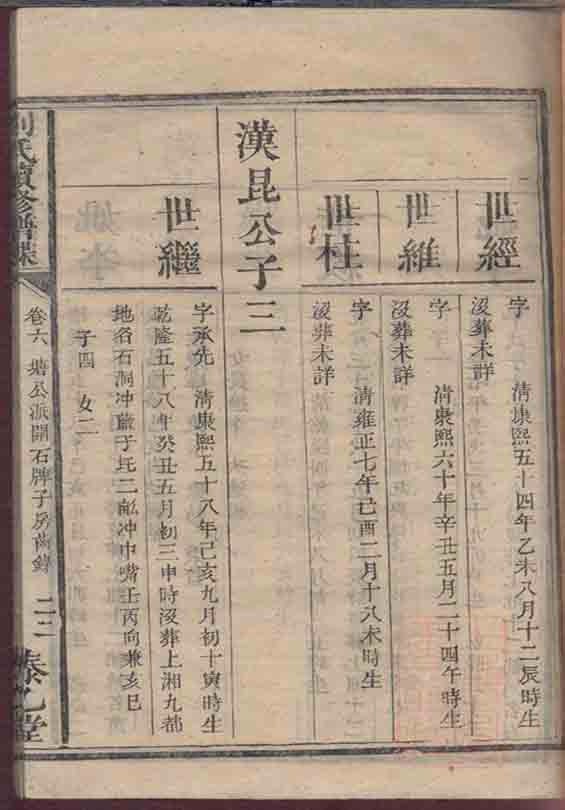 世經
字 清康熙五十四年乙未八月十二辰時生
沒葬未詳
世維
字 清康熙六十年辛丑五月二十四午時生
沒葬未詳
世柱
字 清雍正七年己酉二月十八未時生
沒葬未詳
漢昆公子三
世繼
字承先 清康熙五十八年己亥九月初十寅時生
乾隆五十八年癸丑五月初三申時沒葬上湘九都
地名石洞冲 于圫二 冲中嘴壬丙向兼亥巳
子四 女二
氏續修譜
卷六 塘公派開石牌子房 錄